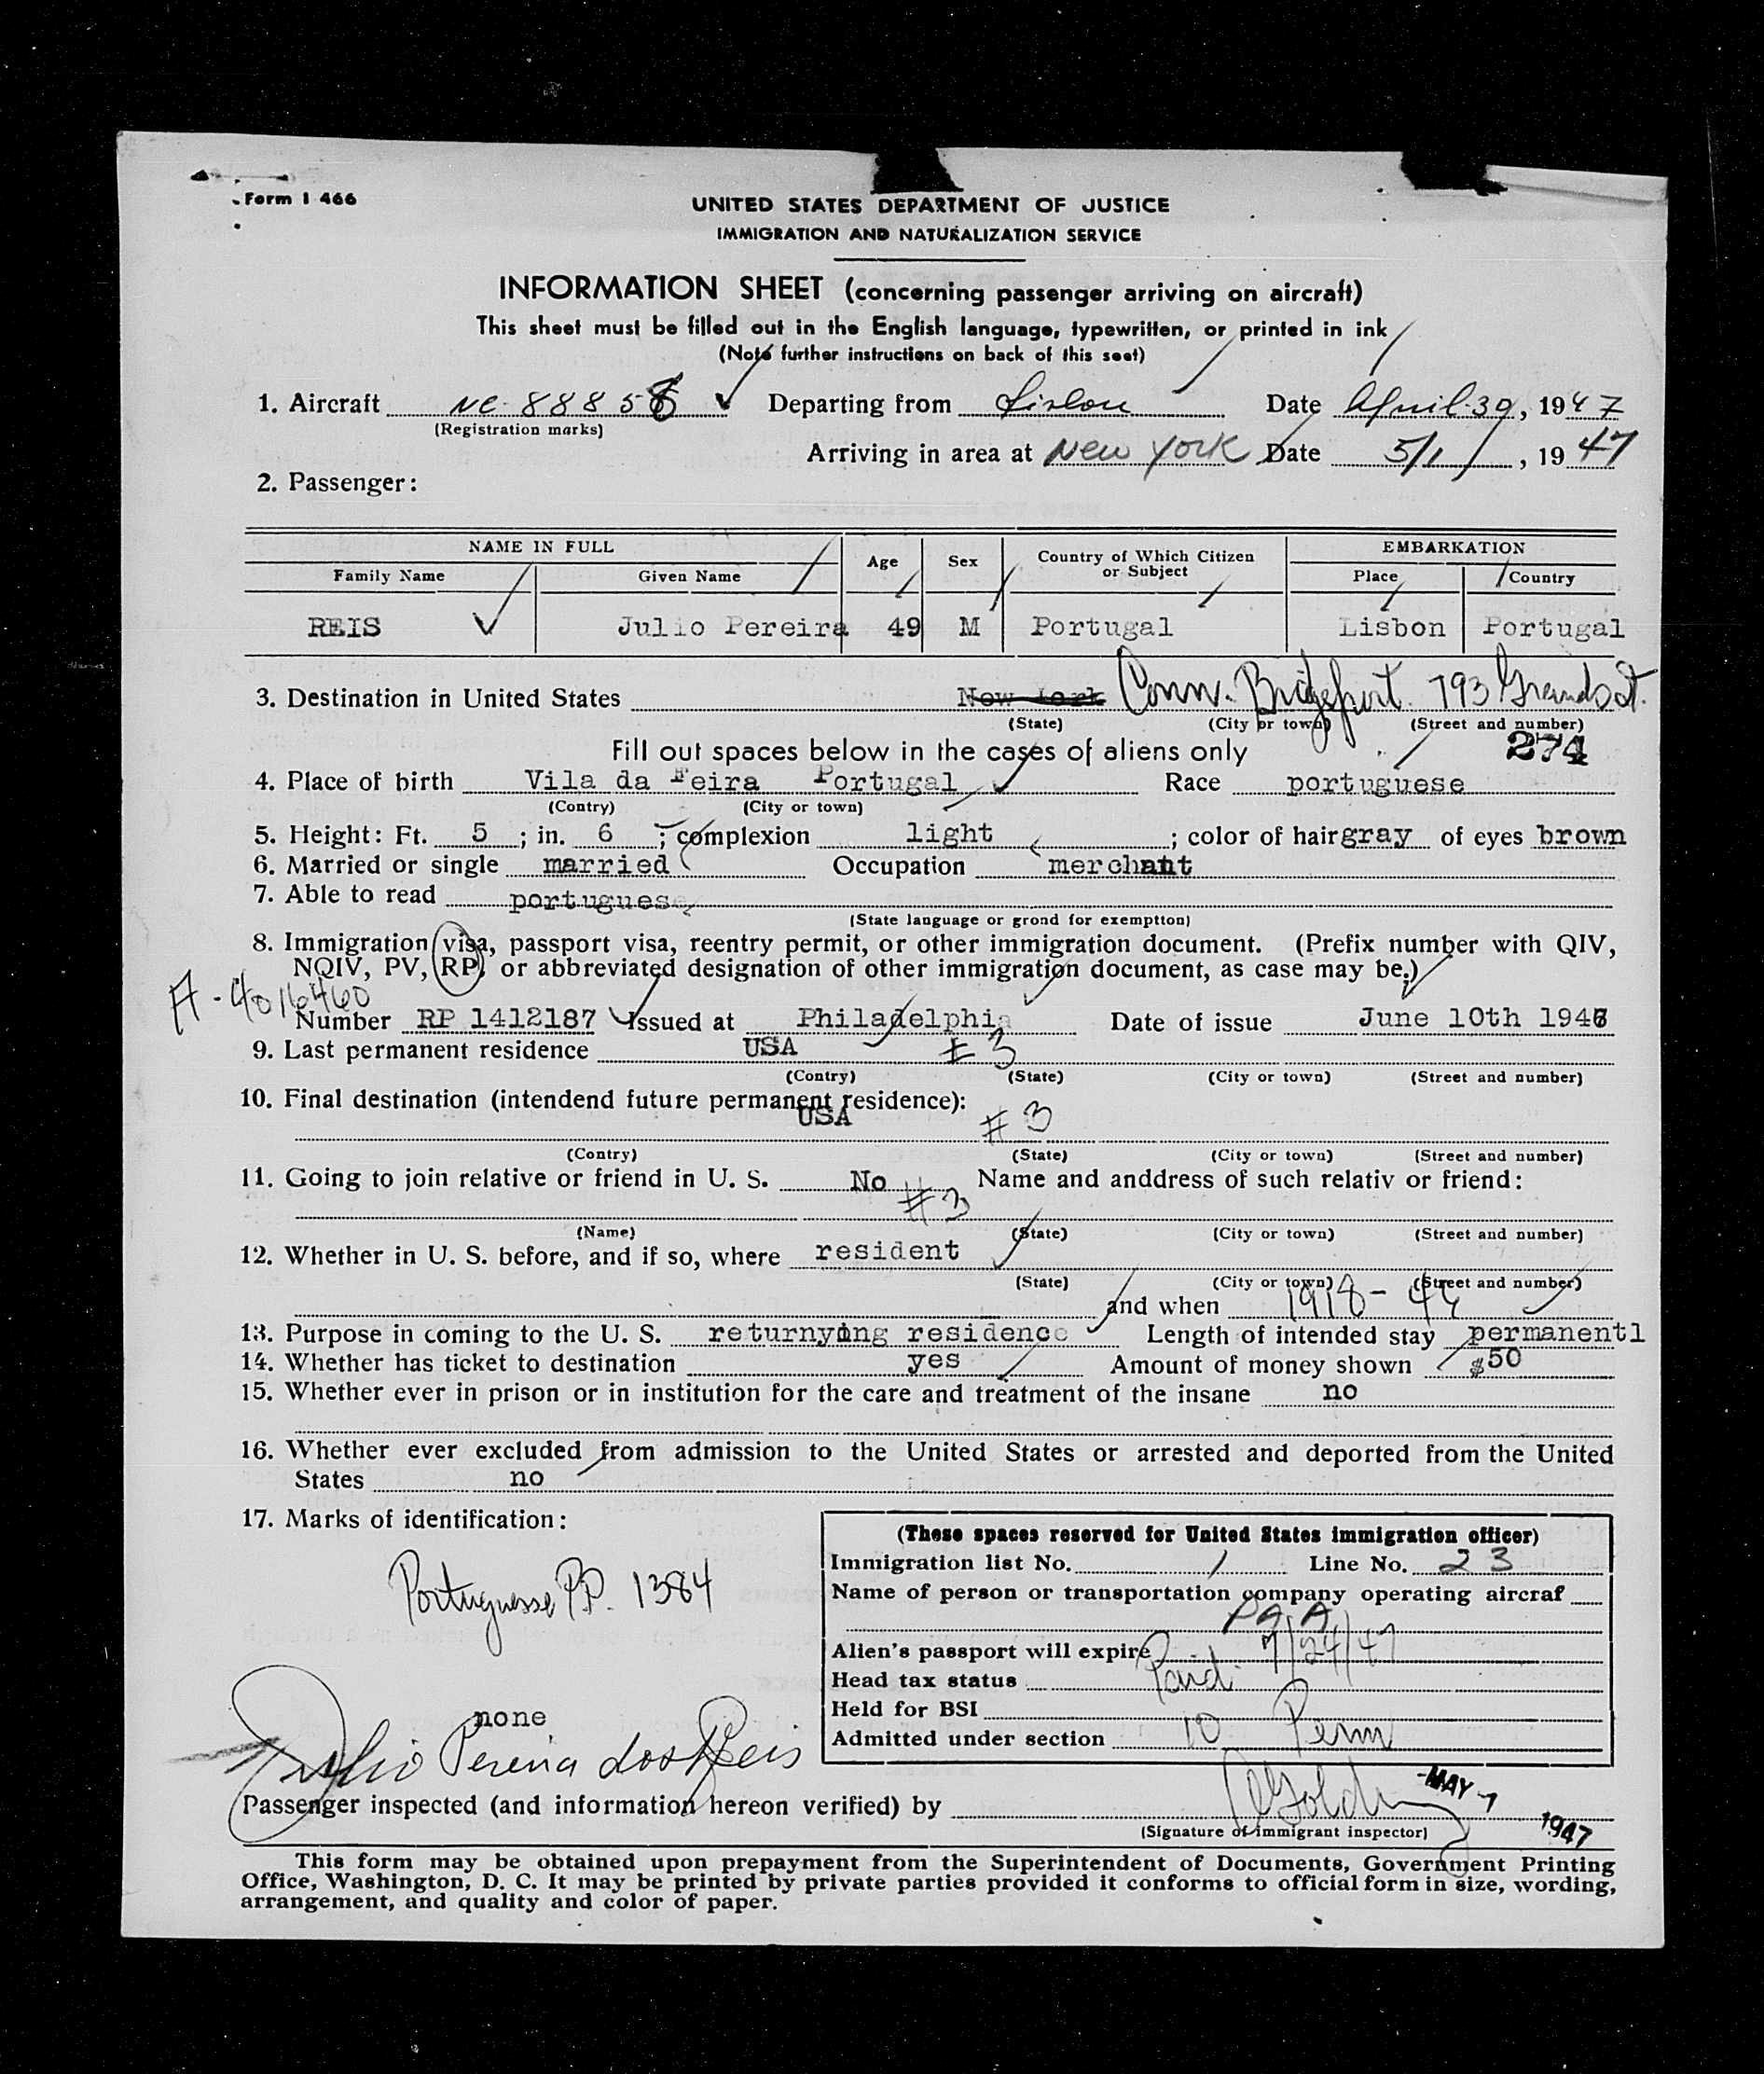 Form I 466
UNITED STATES DEPARTMENT OF JUSTICE
IMMIGRATION AND NATURALIZATION SERVICE
INFORMATION SHEET (concerning passenger arriving on aircraft)
This sheet must be filled out in the English language, typewritten, or printed in ink
(Note further instructions on back of this seet)
1. Aircraft NC-88858 Departing from Lisbon Date April 30, 1947
(Registration marks)
Arriving in area at New York Date 5/1, 1947
2. Passenger:
NAME IN FULL Age Sex Country of Which Citizen or Subject EMBARKATION
Family Name Given Name Place Country
REIS Julio Pereira 49 M Portugal Lisbon Portugal
3. Destination in United States New York Conn. Bridgeport 793 Grand St.
(State) (City or town) (Street and number)
Fill out spaces below in the cases of aliens only 274
4. Place of birth Vila da Feira Portugal Race portuguese
(Contry) (City or town)
5. Height: Ft. 5 ; in. 6 ; complexion light ; color of hair gray of eyes brown
6. Married or single married Occupation merchant
7. Able to read portuguese
(State language or grond for exemption)
8. Immigration visa, passport visa, reentry permit, or other immigration document. (Prefix number with QIV,
NQIV, PV, RP, or abbreviated designation of other immigration document, as case may be.)
A-4016460
Number RP 1412187 Issued at Philadelphia Date of issue June 10th 1946
9. Last permanent residence USA #3
(Contry) (State) (City or town) (Street and number)
10. Final destination (intendend future permanent residence):
USA #3
(Contry) (State) (City or town) (Street and number)
11. Going to join relative or friend in U. S. No Name and anddress of such relativ or friend:
#3
(Name) (State) (City or town) (Street and number)
12. Whether in U. S. before, and if so, where resident
(State) (City or town) (Street and number)
and when 1918-46
13. Purpose in coming to the U. S. returnying residence Length of intended stay permanentl
14. Whether has ticket to destination yes Amount of money shown $50
15. Whether ever in prison or in institution for the care and treatment of the insane no
16. Whether ever excluded from admission to the United States or arrested and deported from the United
States no
17. Marks of identification:
Portuguese P.P. 1384
none
Julio Pereira dos Reis
(These spaces reserved for United States immigration officer)
Immigration list No. 1 Line No. 23
Name of person or transportation company operating aircraf
P.A.A.
Alien's passport will expire 7/24/47
Head tax status Paid
Held for BSI
Admitted under section 10 Perm
Passenger inspected (and information hereon verified) by MAY -1 1947
(Signature of immigrant inspector)
This form may be obtained upon prepayment from the Superintendent of Documents, Government Printing
Office, Washington, D. C. It may be printed by private parties provided it conforms to official form in size, wording,
arrangement, and quality and color of paper.